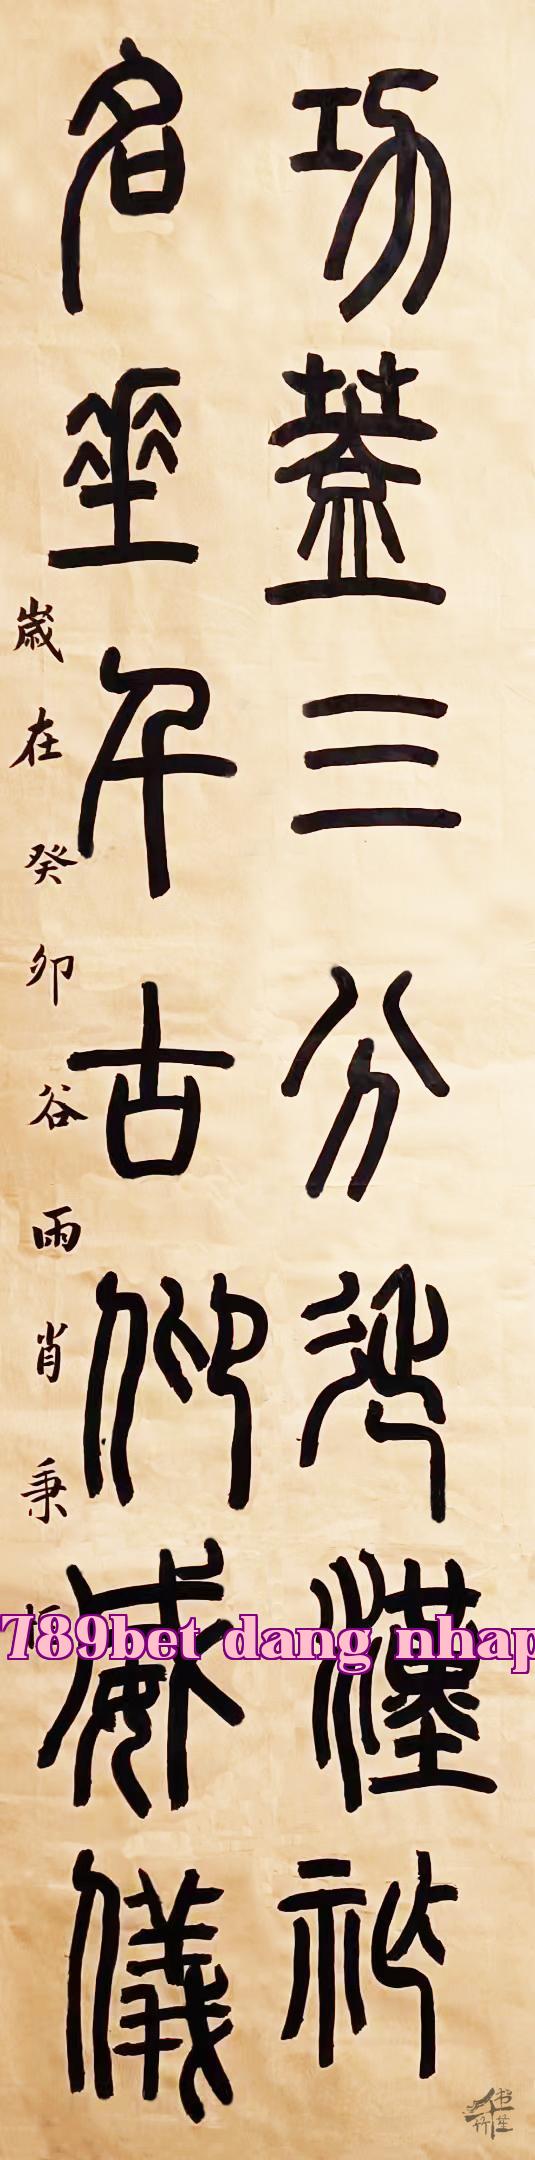 功蓋三分延漢祚
名垂千古仰威儀
歲在癸卯谷雨肖秉
789bet dang nhap